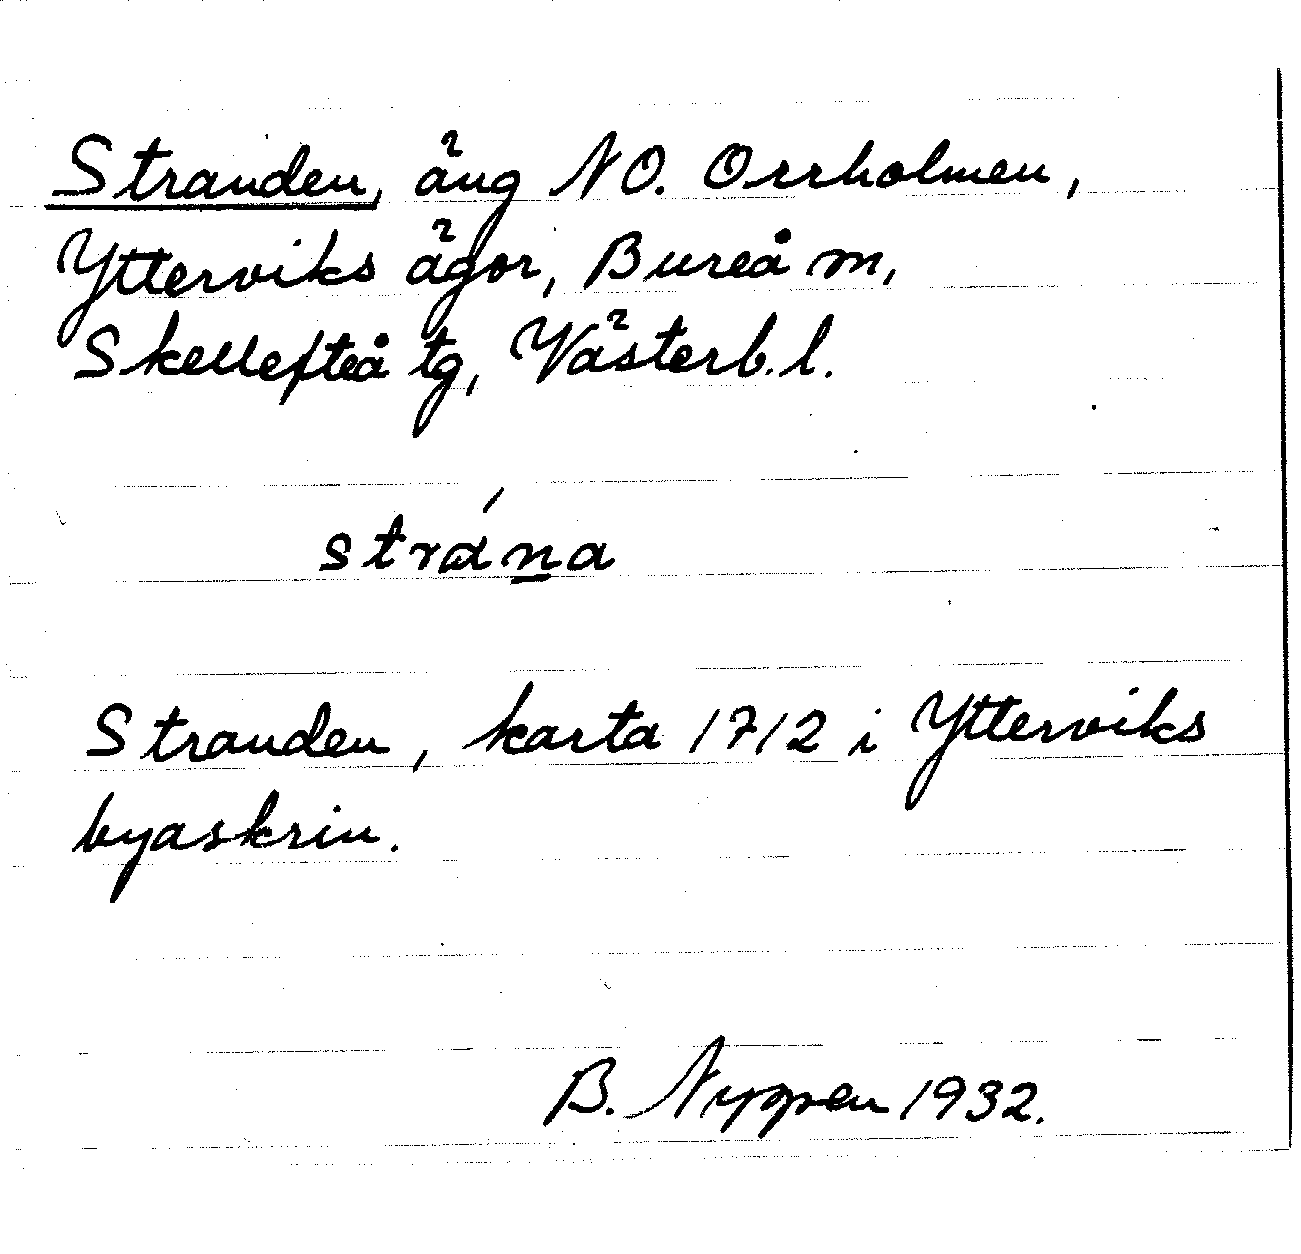 Stranden, äng NO. Orrholmen,
Ytterviks ägor, Bureå m,
Skellefteå tg, Västerb. l.
strána
Stranden, karta 1712 i Ytterviks
byaskrin.
B. Nyppen 1932.